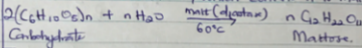 2(C₆H₁₀O₅)n + nH₂O malt (diastase) n C₁₂H₂₂O₁₁
60°C
Carbohydrate Maltose.